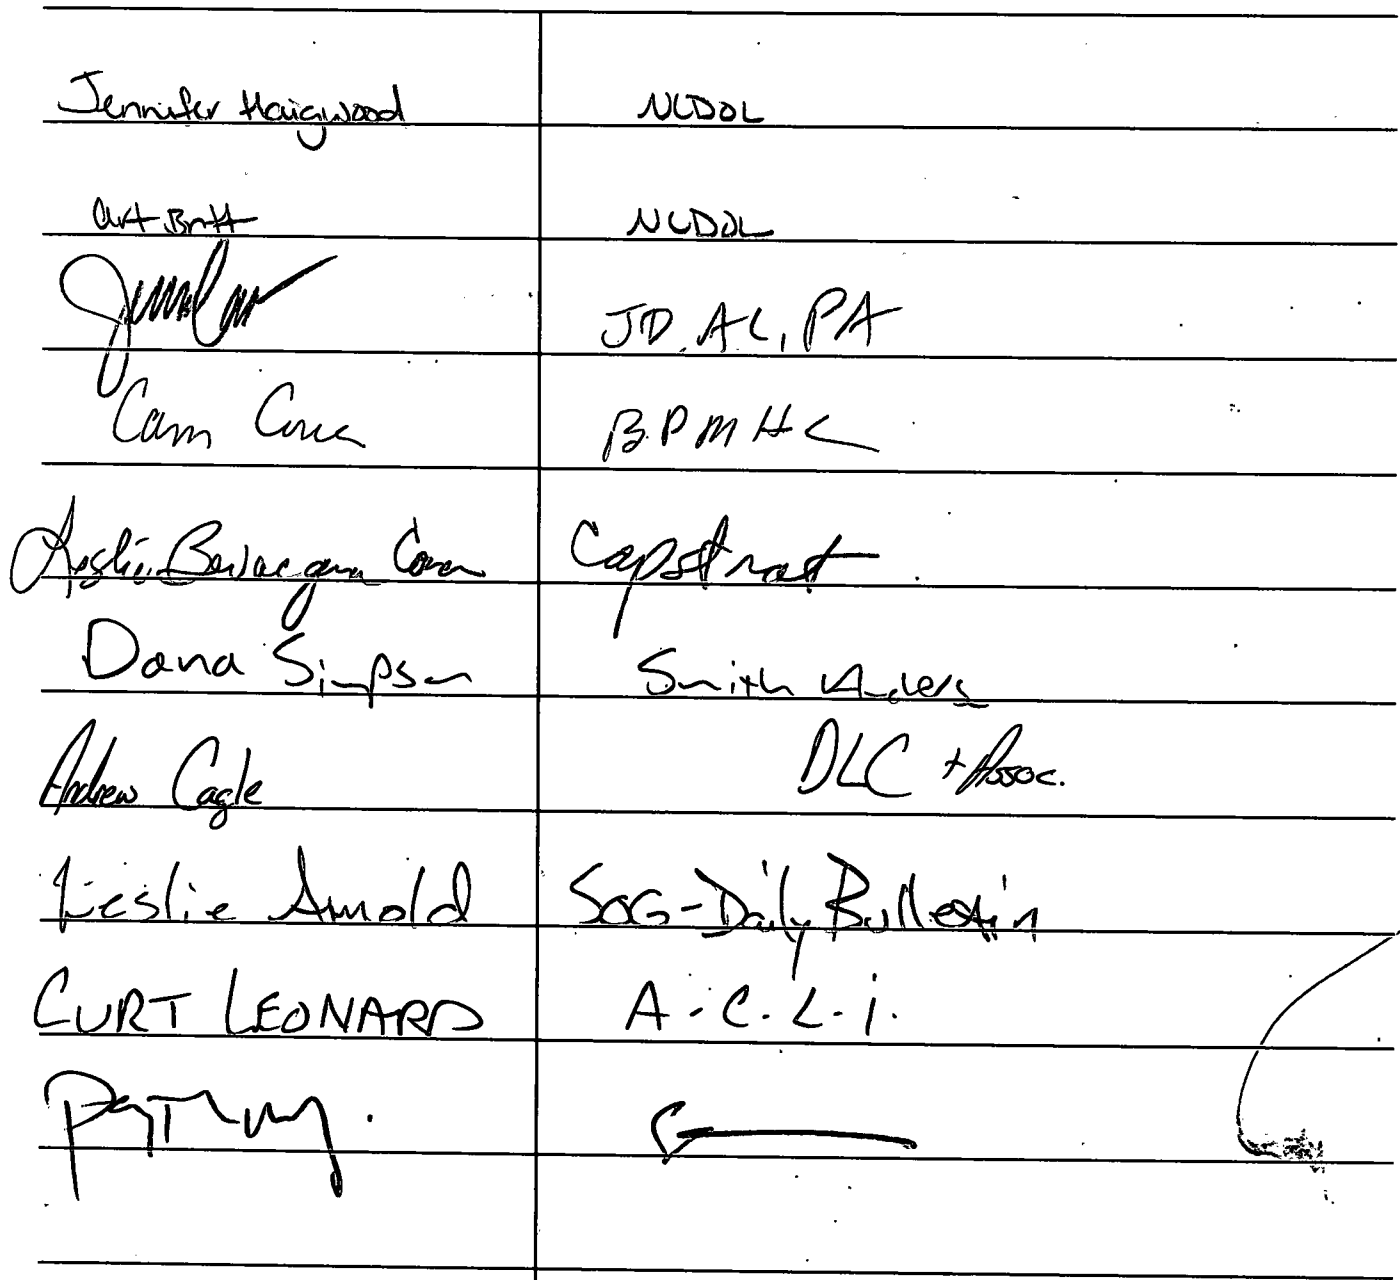 Jennifer Haigwood NCDOL
Art Britt NCDOL
JD, AC, PA
Cam Cover BPMHL
Leslie Bevacqua Coman Capstrat
Dana Simpson Smith Anders
Andrew Cagle DLC + Assoc.
Leslie Arnold SOG-Daily Bulletin
CURT LEONARD A.C.L.i.